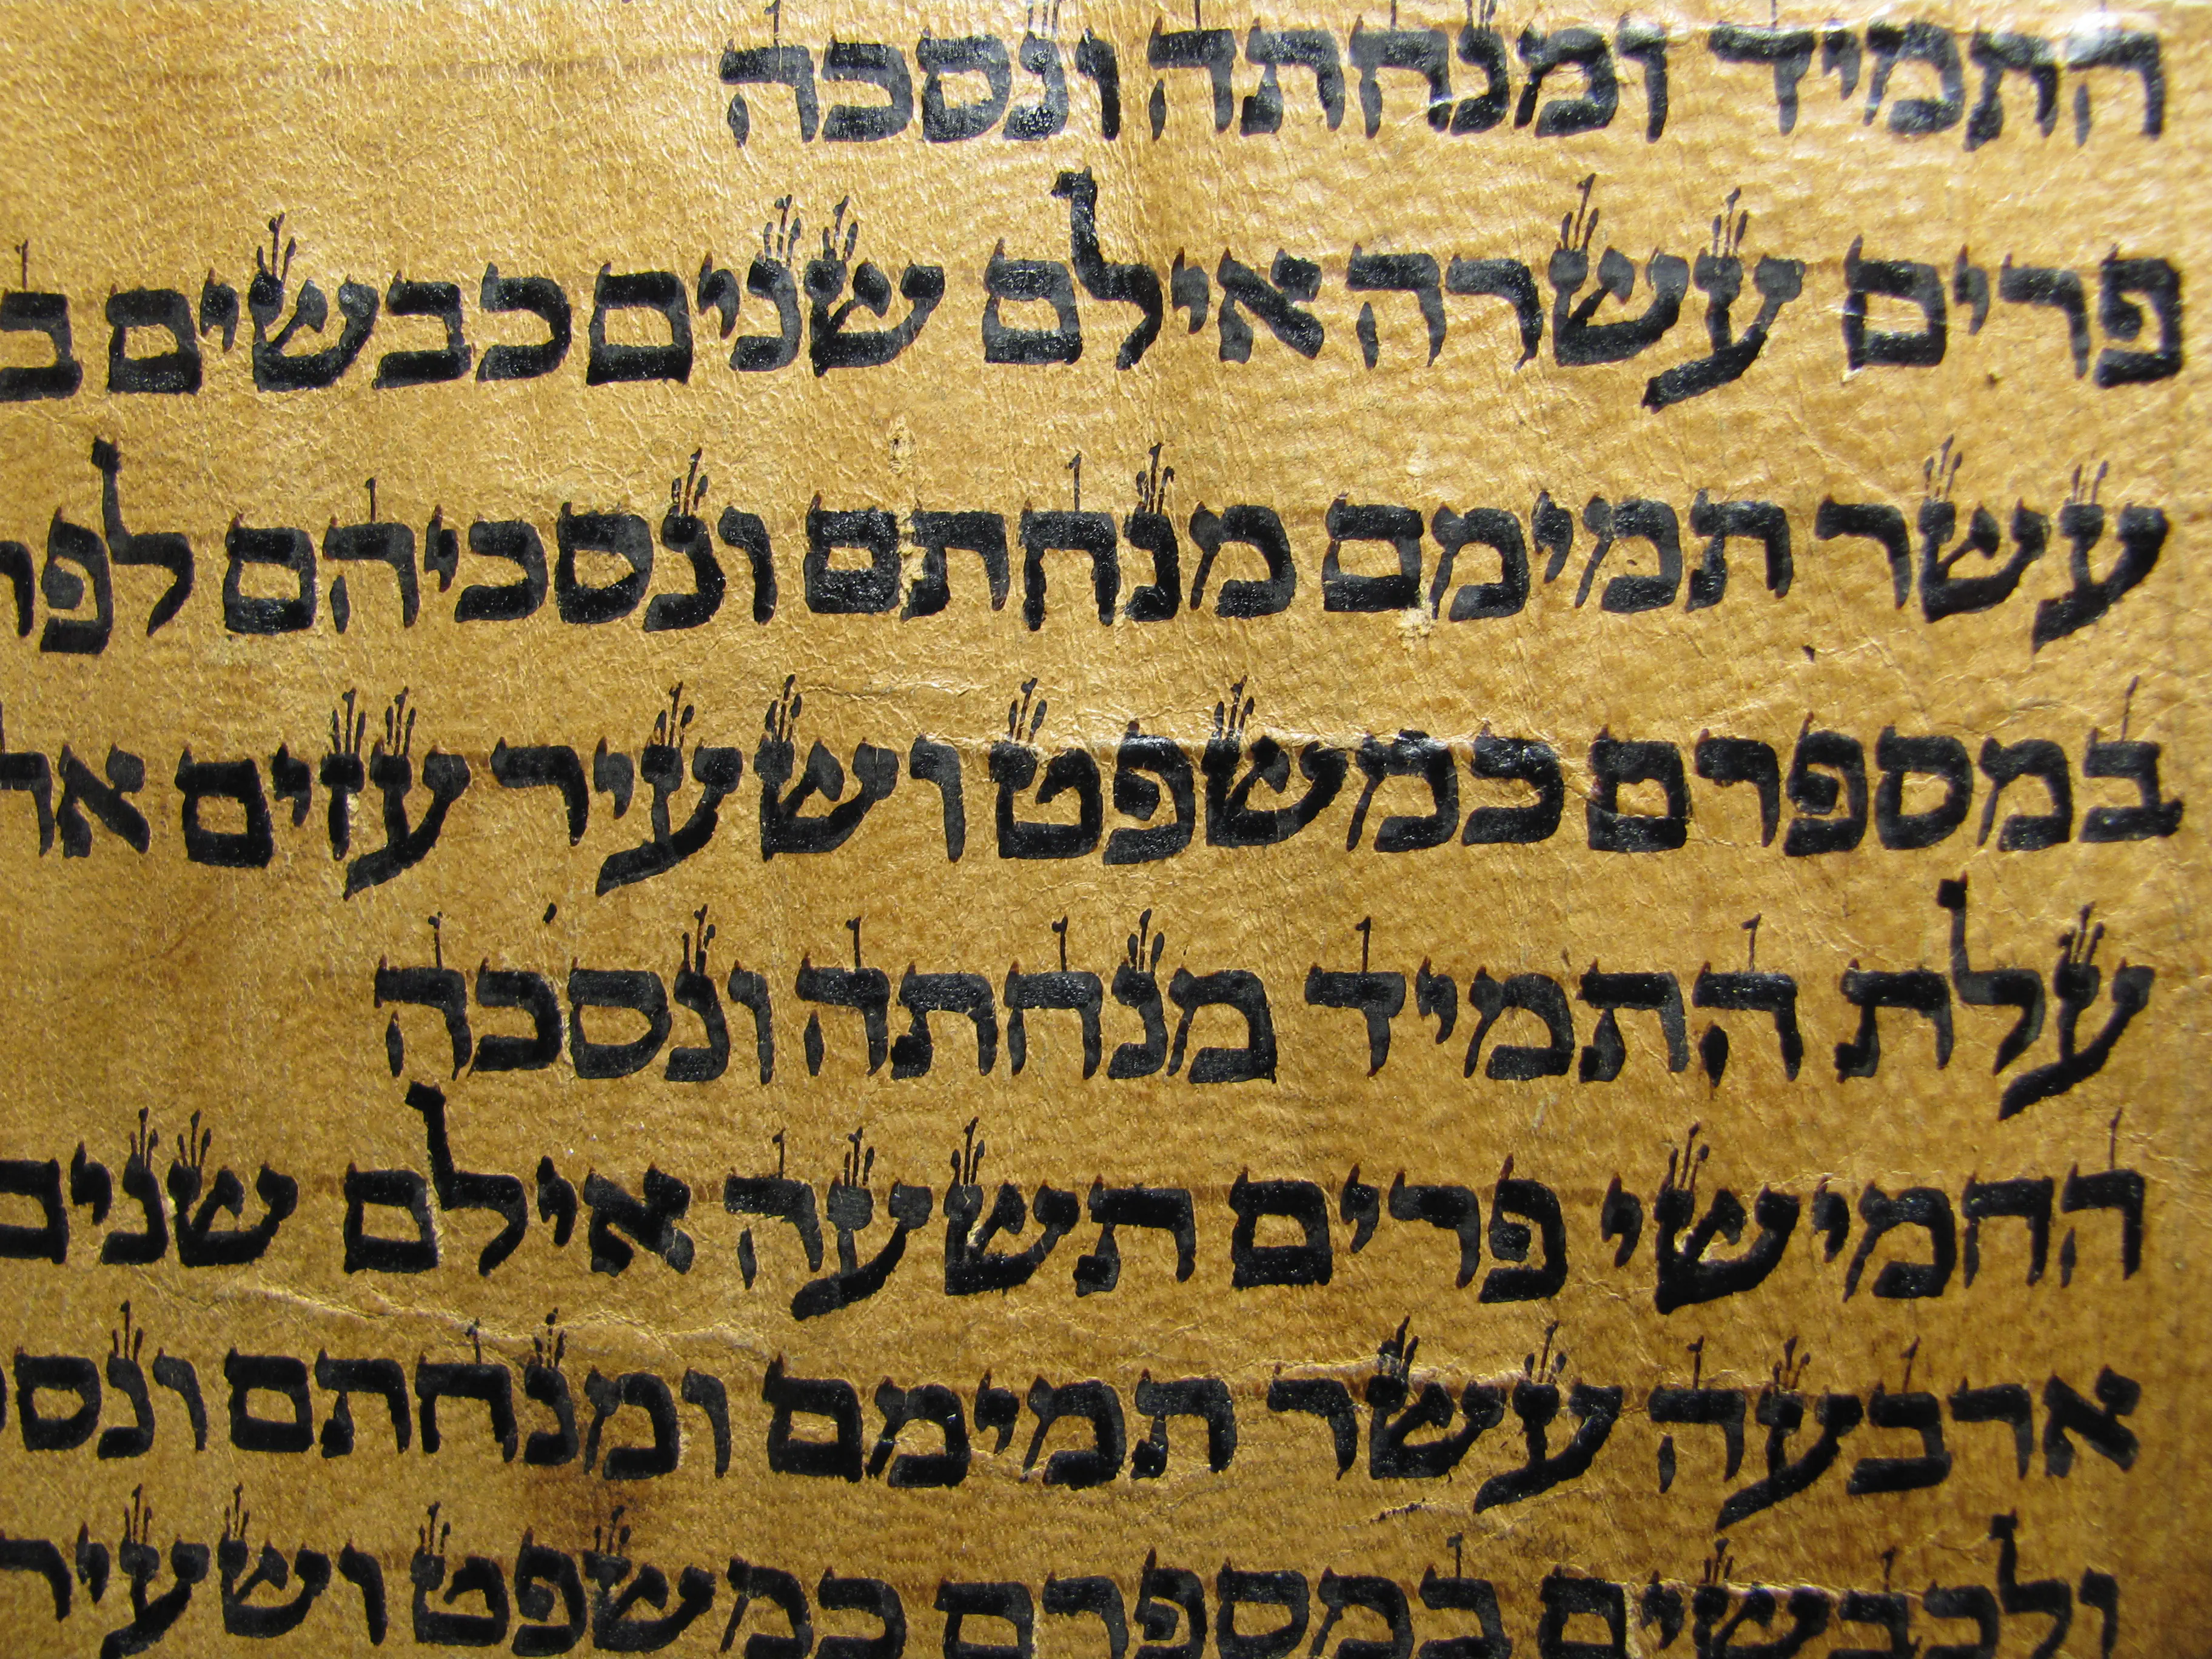 התמיד ומנחתה ונסכה
פרים עשרה אילם שנים כבשים
עשר תמימם מנחתם ונסכיהם
במספרם כמשפט ושעיר עזים
עלת התמיד מנחתה ונסכה
החמישי פרים תשעה אילם שנים
ארבעה עשר תמימם ומנחתם
ולכבשים במספרם כמשפט ושעיר